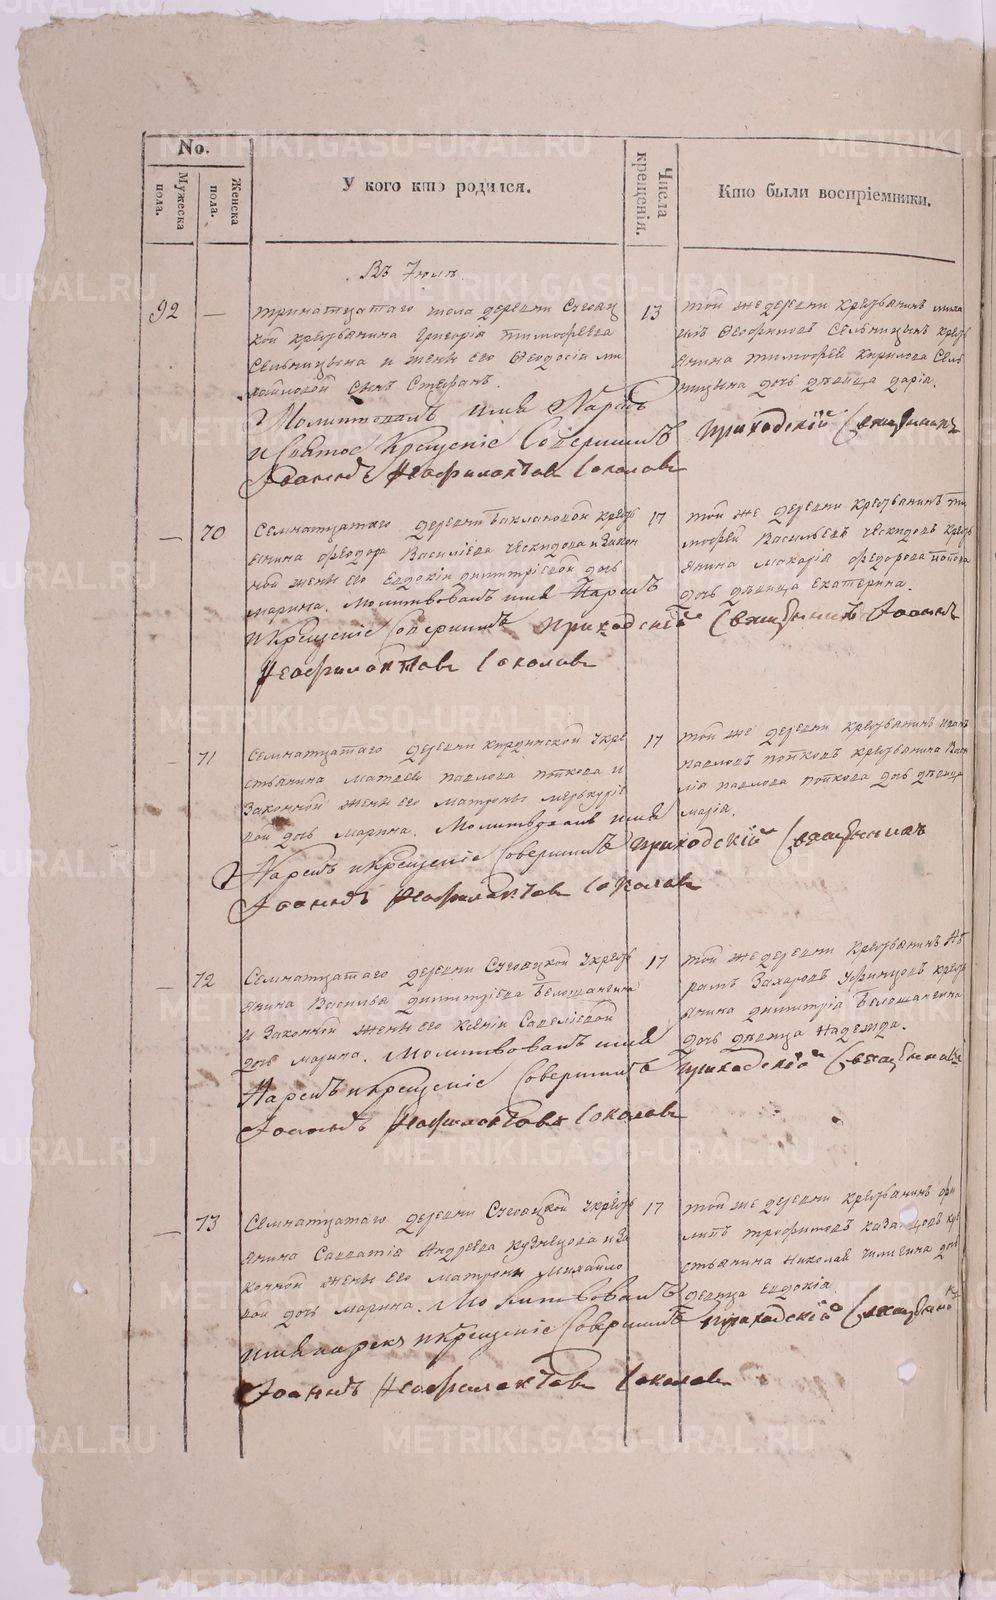 No.
Мужеска пола.
Женска пола.
У кого кто родился.
Числа крещенія.
Кто были воспріемники.
Въ Июлѣ
92 — тринатцатаго числа деревни
кой крестьянина Григорія тимофеева
Сельницына и жены его Феодосіи ми
хайловой сынъ Стефанъ.
Молитвовалъ имя Нарекъ
и Святое Крещеніе Совершилъ
Іоаннъ Неофилактовъ Соколовъ
13
той же деревни крестьянинъ миха
илъ Феофиловъ Сельницынъ кресть
янина тимофея кирилова Сель
ницына дочь дѣвица дарія.
Приходскій Священникъ
— 70 Семнатцатаго деревни Баклановой кресть
янина феодора Василіева Ческидова и закон
ной жены его Евдокіи димитріевой дочь
марина. Молитвовалъ имя Нарекъ
и Крещеніе Совершилъ Приходскій Священникъ Іоаннъ
Неофилактовъ Соколовъ
17
той же деревни крестьянинъ ти
мофей Васильевъ Ческидовъ кресть
янина макарія федорова попова
дочь дѣвица Екатерина.
— 71 Семнатцатаго деревни кре
стьянина матвея павлова попкова и
Законной жены его матроны меркуріе
вой дочь марина. Молитвовалъ имя
Нарекъ и Крещеніе Совершилъ Приходскій Священникъ
Іоаннъ Неофилактовъ Соколовъ
17
той же деревни крестьянинъ иванъ
павловъ попковъ крестьянина Васи
лія павлова попкова дочь дѣвица
марія.
— 72 Семнатцатаго деревни кресть
янина Василья димитріева Белошангина
и Законной жены его ксеніи Савеліевой
дочь марина. Молитвовалъ имя
Нарекъ и Крещеніе Совершилъ Приходскій Священникъ
Іоаннъ Неофилактовъ Соколовъ
17
той же деревни крестьянинъ Аб
рамъ Захаровъ Уфинцовъ кресть
янина димитрія Белошангина
дочь дѣвица Надежда.
— 73 Семнатцатаго деревни кресть
янина Савватія Андреева кузнецова и за
конной жены его матроны михайло
вой дочь марина. Молитвовалъ
имя нарекъ и Крещеніе Совершилъ Приходскій Священникъ
Іоаннъ Неофилактовъ Соколовъ
17
той же деревни крестьянинъ фи
липъ трофимовъ казанцовъ кре
стьянина Николая Чиличина дочь
девица евдокія.
METRIKI.GASO-URAL.RU